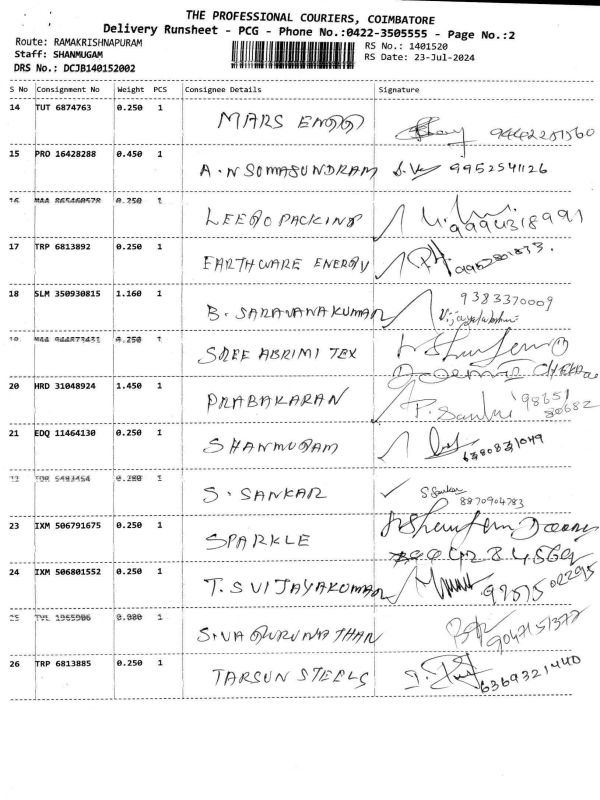 THE PROFESSIONAL COURIERS, COIMBATORE
Delivery Runsheet - PCG - Phone No.:0422-3505555 - Page No.:2
Route: RAMAKRISHNAPURAM
RS No.: 1401520
Staff: SHANMUGAM
RS Date: 23-Jul-2024
DRS No.: DCJB140152002
S No Consignment No Weight PCS Consignee Details Signature
14 TUT 6874763 0.250 1 MARS ENGG 94422
15 PRO 16428288 0.450 1 A.N SOMASUNDRAM 9952541126
16 MAA 0.250 1 LEEGO PACKING 9994318991
17 TRP 6813892 0.250 1 EARTHWARE ENERGY
18 SLM 350930815 1.160 1 B. SARAVANAKUMAR 9383370009
Vijayalakshmi
19 MAA 0.250 1 SREE ABRIMI TEX
20 HRD 31048924 1.450 1 PRABAKARAN P. Sankri 98651
80682
21 EDQ 11464130 0.250 1 SHANMUGAM
22 0.200 1 S. SANKAR S Sankar
8870904783
23 IXM 506791675 0.250 1 SPARKLE
24 IXM 506801552 0.250 1 T.S VIJAYAKUMAR
25 TVL 1965906 0.080 1 SIVAGURUNATHAN 9047151377
26 TRP 6813885 0.250 1 TARSUN STEELS 6369321440